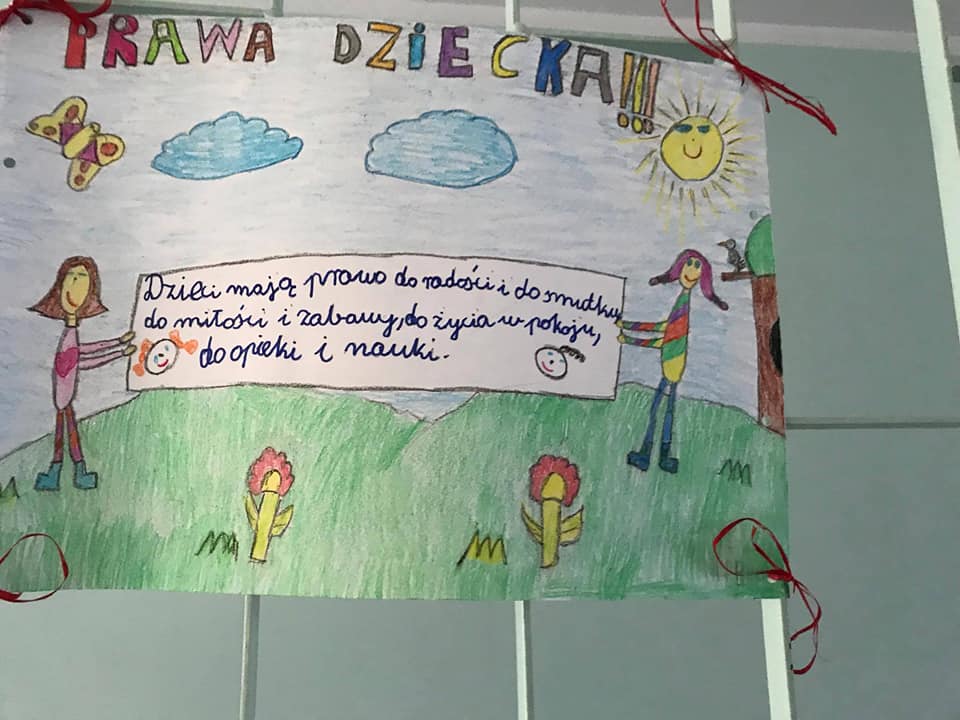 PRAWA DZIECKA!!!
Dzieci mają prawo do radości i do smutku,
do miłości i zabawy, do życia w pokoju,
do opieki i nauki.